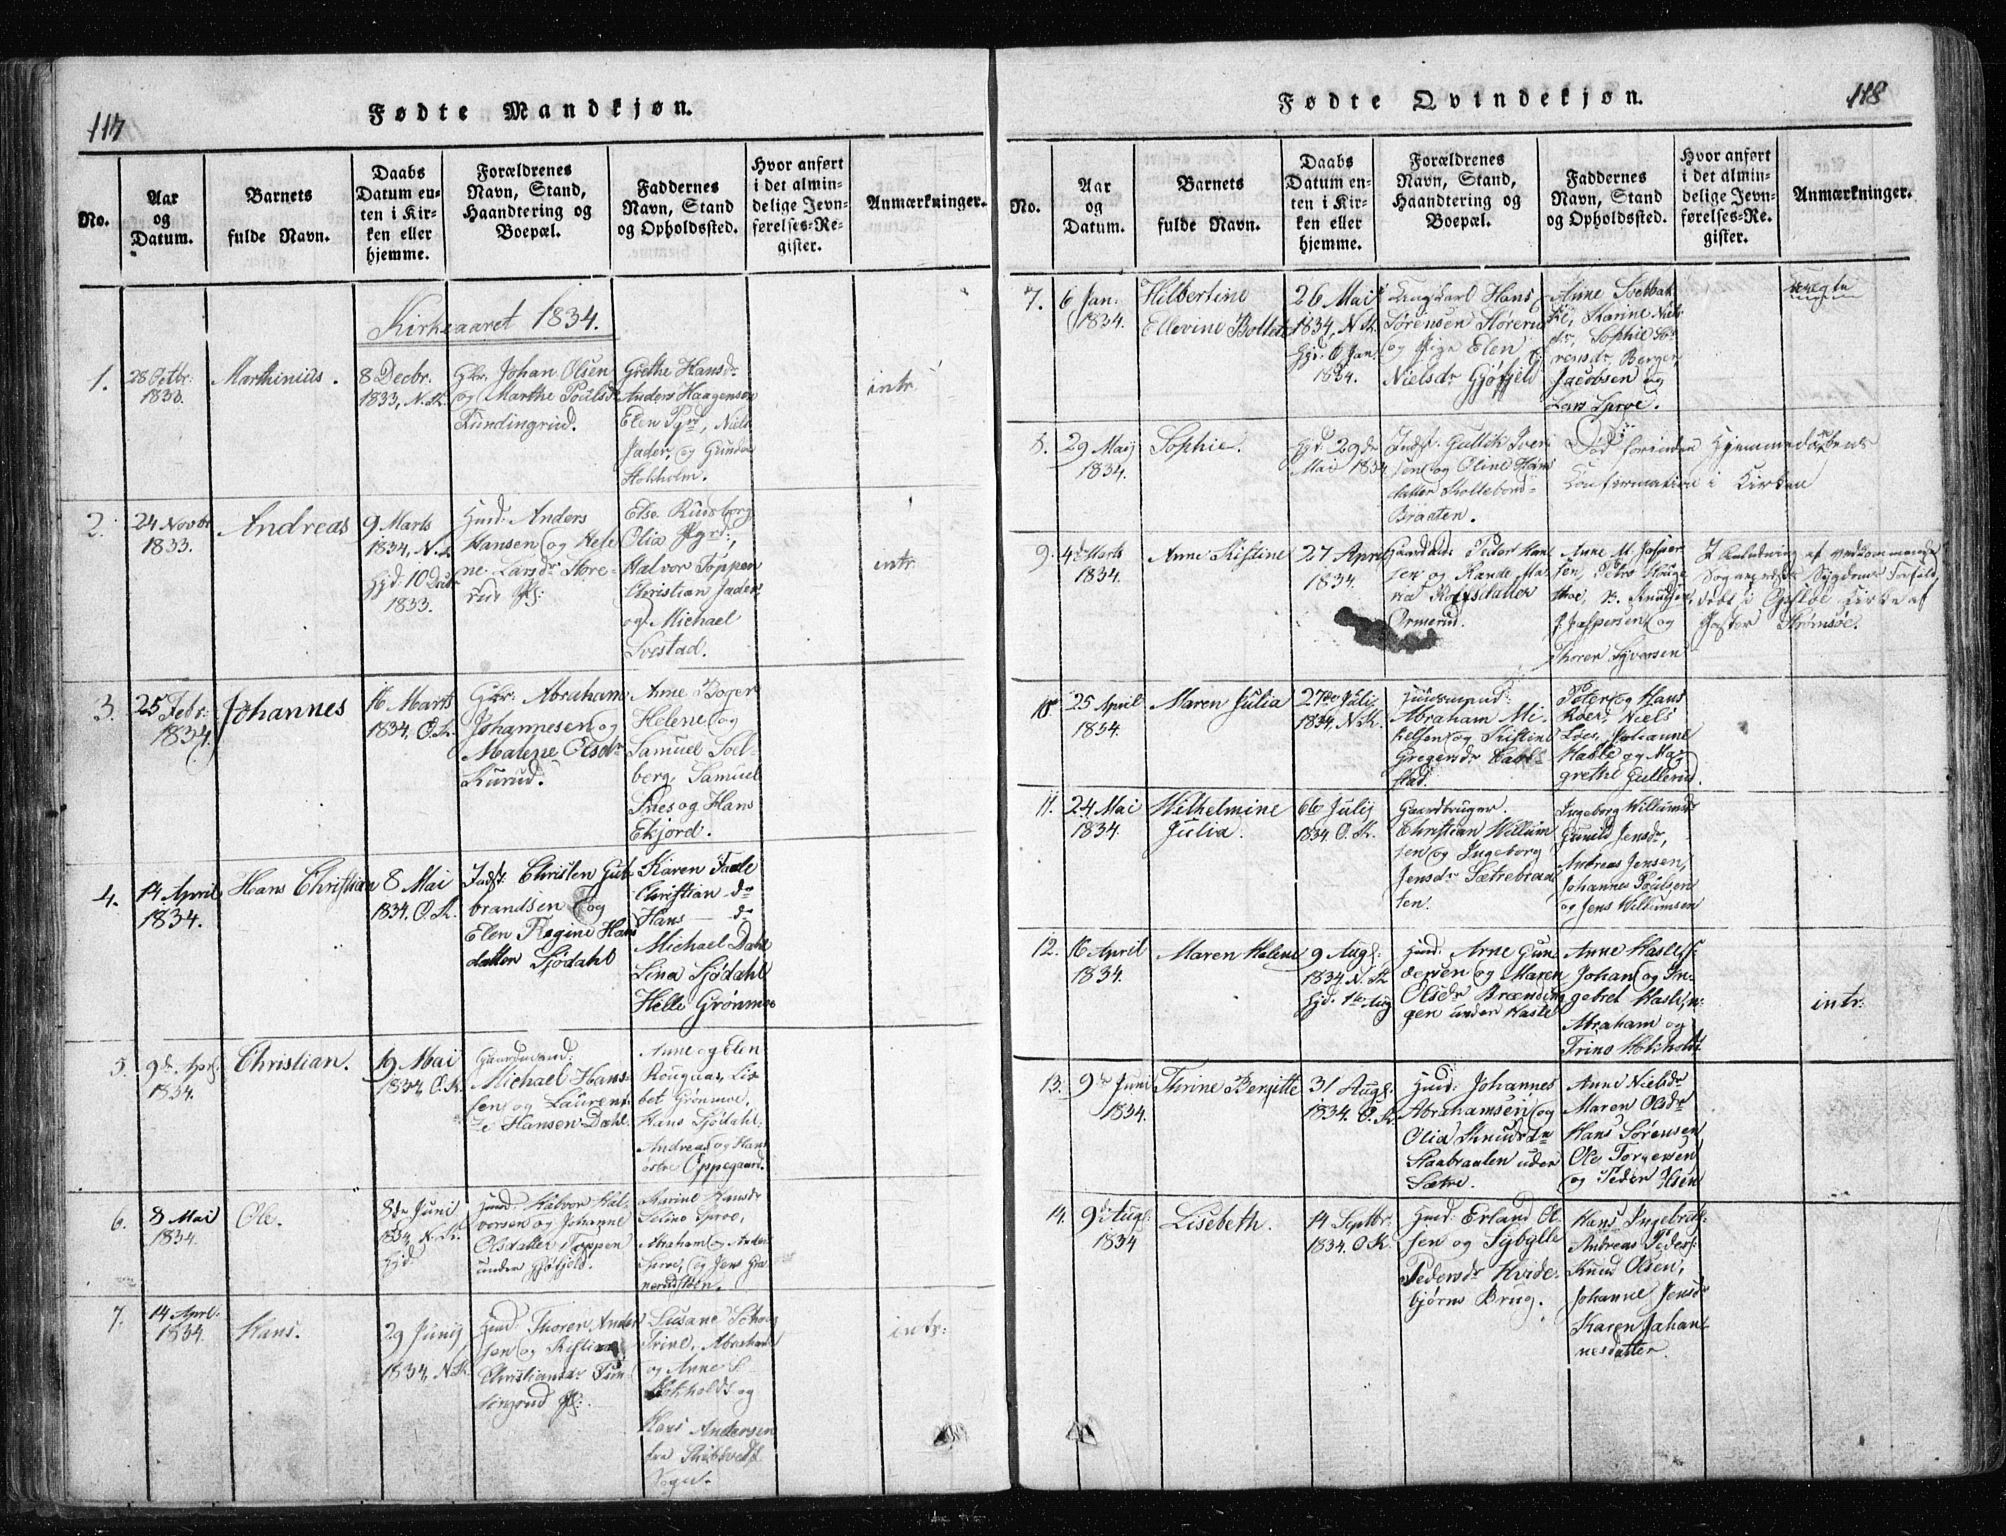 117
Fødte Mandkjøn.
No.
Aar
og
Datum.
Barnets
fulde Navn.
Daabs
Datum en-
ten i Kir-
ken eller
hjemme.
Forældrenes
Navn, Stand,
Haandtering og
Boepæl.
Faddernes
Navn, Stand
og Opholdssted.
Hvor anført
i det almin-
delige Jevn-
førelses-Re-
gister.
Anmærkninger.
Kirkeaaret 1834.
1.
28 Octbr.
1833.
Marthinius.
8 Decbr.
1833, N.K.
Gbr. Johan Olsen
og Marthe Poulsdr
Fundingrud.
Grethe Hansdr
Anders Haagensen
Elen
Jader, og Gunder
Stokholm.
intr
2.
24 Novbr
1833.
Andreas
9 Marts
1834, N.K.
Hjd. 10 Decbr
1833.
Huusd. Anders
Hansen og Hele
ne Larsdr Store-
rud
Else Rudsberg
Olia
Halvor Toppen
Christian Jader
og Michael
Svestad.
intr
3.
25 Febr.
1834.
Johannes
16 Marts
1834, O.K.
Gbr. Abraham
Johannesen og
Malene Olsdr
Kurud.
Anne Boger
Helene og
Samuel Sol-
berg, Samuel
Snes og Hans
Ekjord.
4.
14 April
1834.
Hans Christian
8 Mai
1834. O.K.
Indst. Christen Gul-
brandsen og
Elen Regine Hans
datter Sjödahl
Karen Taale
Christian do
Hans — do
Michael Dahl
Lina Sjödahl
Helle Grönmoe
5.
9de Apr.
1834.
Christian.
19 Mai
1834, O.K.
Gaardmand:
Michael Han-
sen og Laurent-
ze Hansen Dahl.
Anne og Elen
Rougaas, Lis-
bet Grönmoe,
Hans Sjödahl,
Andreas og Hans
östre Oppegaard.
6.
8 Mai
1834.
Ole.
8de Juni
1834, N.K.
Hjd.
Huusd. Halvor Hal-
vorsen og Johanne
Olsdatter Toppen
under Gjöfjeld.
Marine Hansdr
Seline Sproe,
Abraham og Anders
Sproe, og Jens Gra-
nerudstöen.
7.
14 Apr.
1834.
Hans.
29 Junij
1834, N.K.
Huusd. Thoren Ander
sen og Kistine
Christiansdr Fun-
dingrud
Susane
Trine, Abraham
og Anne
Stokholdt og
Hans Andersen
fra
Sogn.
intr:
118
Fødte Qvindekjøn.
No.
Aar
og
Datum.
Barnets
fulde Navn.
Daabs
Datum en-
ten i Kir-
ken eller
hjemme.
Forældrenes
Navn, Stand,
Haandtering og
Boepæl.
Faddernes
Navn, Stand
og Opholdssted.
Hvor anført
i det almin-
delige Jevn-
førelses-Re-
gister.
Anmærkninger.
7.
6 Jan.
1834.
Hilbertine
Ellevine Bollete
26 Mai
1834, N.K.
Hjd. 6 Jan.
1834.
Ungkarl Hans
Sörensen Storerud
og Pige Elen
Nielsdr Gjöfjeld
Anne Svebak
ke, Karine Niels
dr, Sophie Sö-
rensdr, Berger
Jacobsen og
Lars Sproe.
uægte
8.
29 Maij
1834.
Sophie.
Hjd. 29de
Mai 1834
Indst. Gullik Iver
sen og Oline Hans
datter Skollebond-
Braaten.
Död forinden Hjemmedaabens
Confirmation i Kirken
9.
4de Marts
1834.
Anne Kistine
27 April
1834.
Peder Han
sen og Rande Ma-
ria Rolfsdatter
Ormerud.
Anne M. Jasper
sen,
J. Jaspersen og
Thoren Syversen
I Anledning af vedkommende
Sognepræsts Sygdoms Forfald,
döbt i Opsloe Kirke af
Pastor Strömsöe.
10
25 April
1834.
Maren Julia
27de Julij
1834, N.K.
Huusmand:
Abraham Mi-
kelsen og Kistine
Gregersdr
stad.
Peter og Hans
Roer, Niels
Loes, Johanne
Hable og Ma-
grethe Gullerud.
11.
24 Mai
1834.
Wilhelmine
Julia.
6te Julij
1834. O.K.
Gaardbruger.
Christian Willum
sen og Ingeborg
Jensdr Sætrebraa-
ten.
Ingeborg Willumsdr
Gunild Jensdr,
Andreas Jensen,
Johannes Poulsen
og Jens Willumsen
12.
16 April
1834.
Maren Helene
9 Aug.
1834. N.K.
Hjd. 1te Aug
Huusd. Arne Gun
dersen og Maren
Olsdr Brænden
gen under Hasle
Anne Hasle,
Johan og In-
gebret Hasle,
Abraham og
Trine Stokholdt
intr:
13.
9de Juni
1834.
Thrine Bergitte
31 Aug.
1834. O.K.
Huusd: Johannes
Abrahamsen og
Olia Knudsdr
Staabraaten under
Sætre.
Anne Nielsdr
Maren Olsdr
Hans Sörensen
Ole Torgersen
og Peder Olsen
14.
9de Aug:
1834
Lisebeth.
14 Septbr.
1834. O.K.
Huusd: Erland Ol-
sen og Sybylle
Pedersdr Hvide-
björns Brug.
Hans Ingebret
Andreas Peders:
Knud Olsen,
Johanne Jensdr
Karen Johan-
nesdatter.